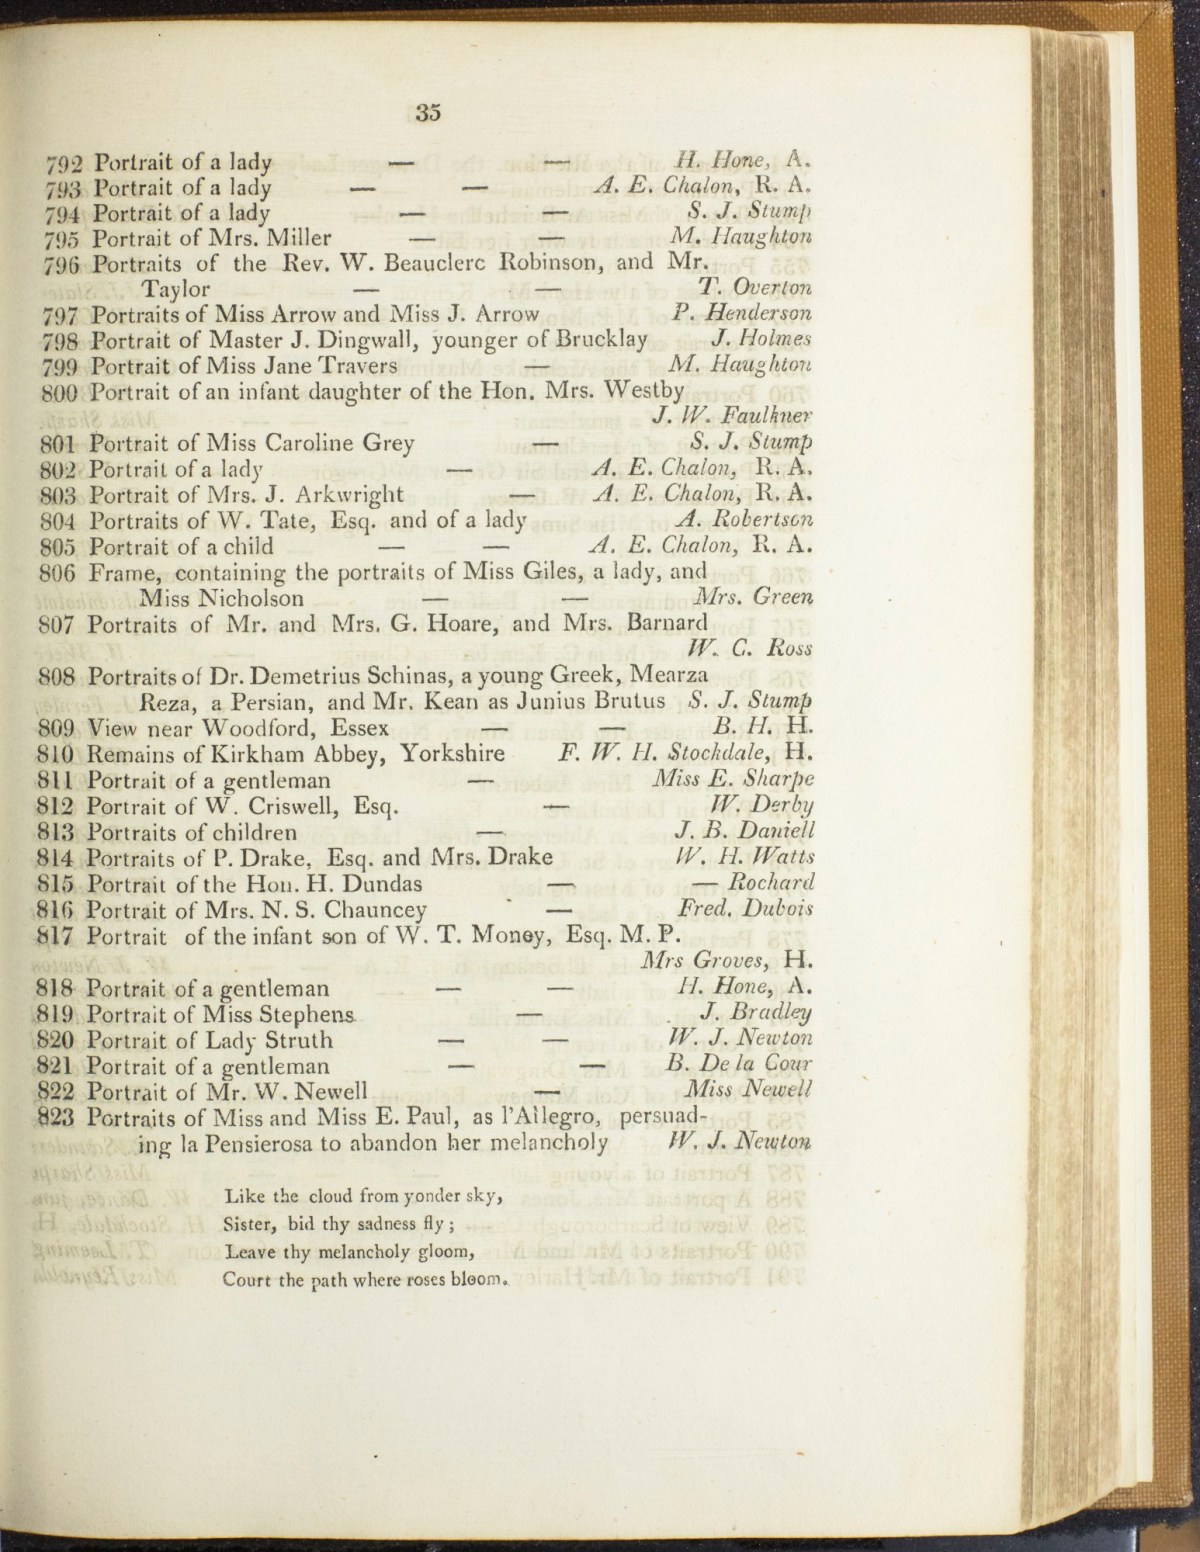 35
792 Portrait of a lady — — H. Hone, A.
793 Portrait of a lady — — A. E. Chalon, R. A.
794 Portrait of a lady — — S. J. Stump
795 Portrait of Mrs. Miller — — M. Haughton
796 Portraits of the Rev. W. Beauclerc Robinson, and Mr.
Taylor — — T. Overton
797 Portraits of Miss Arrow and Miss J. Arrow P. Henderson
798 Portrait of Master J. Dingwall, younger of Brucklay J. Holmes
799 Portrait of Miss Jane Travers — M. Haughton
800 Portrait of an infant daughter of the Hon. Mrs. Westby
J. W. Faulkner
801 Portrait of Miss Caroline Grey — S. J. Stump
802 Portrait of a lady — A. E. Chalon, R. A.
803 Portrait of Mrs. J. Arkwright — A. E. Chalon, R. A.
804 Portraits of W. Tate, Esq. and of a lady A. Robertson
805 Portrait of a child — — A. E. Chalon, R. A.
806 Frame, containing the portraits of Miss Giles, a lady, and
Miss Nicholson — — Mrs. Green
807 Portraits of Mr. and Mrs. G. Hoare, and Mrs. Barnard
W. C. Ross
808 Portraits of Dr. Demetrius Schinas, a young Greek, Mearza
Reza, a Persian, and Mr. Kean as Junius Brutus S. J. Stump
809 View near Woodford, Essex — — B. H. H.
810 Remains of Kirkham Abbey, Yorkshire F. W. H. Stockdale, H.
811 Portrait of a gentleman — Miss E. Sharpe
812 Portrait of W. Criswell, Esq. — W. Derby
813 Portraits of children — J. B. Daniell
814 Portraits of P. Drake, Esq. and Mrs. Drake W. H. Watts
815 Portrait of the Hon. H. Dundas — — Rochard
816 Portrait of Mrs. N. S. Chauncey — Fred. Dubois
817 Portrait of the infant son of W. T. Money, Esq. M. P.
Mrs Groves, H.
818 Portrait of a gentleman — — H. Hone, A.
819 Portrait of Miss Stephens — J. Bradley
820 Portrait of Lady Struth — — W. J. Newton
821 Portrait of a gentleman — — B. De la Cour
822 Portrait of Mr. W. Newell — Miss Newell
823 Portraits of Miss and Miss E. Paul, as l'Allegro, persuad-
ing la Pensierosa to abandon her melancholy W. J. Newton
Like the cloud from yonder sky,
Sister, bid thy sadness fly ;
Leave thy melancholy gloom,
Court the path where roses bloom.